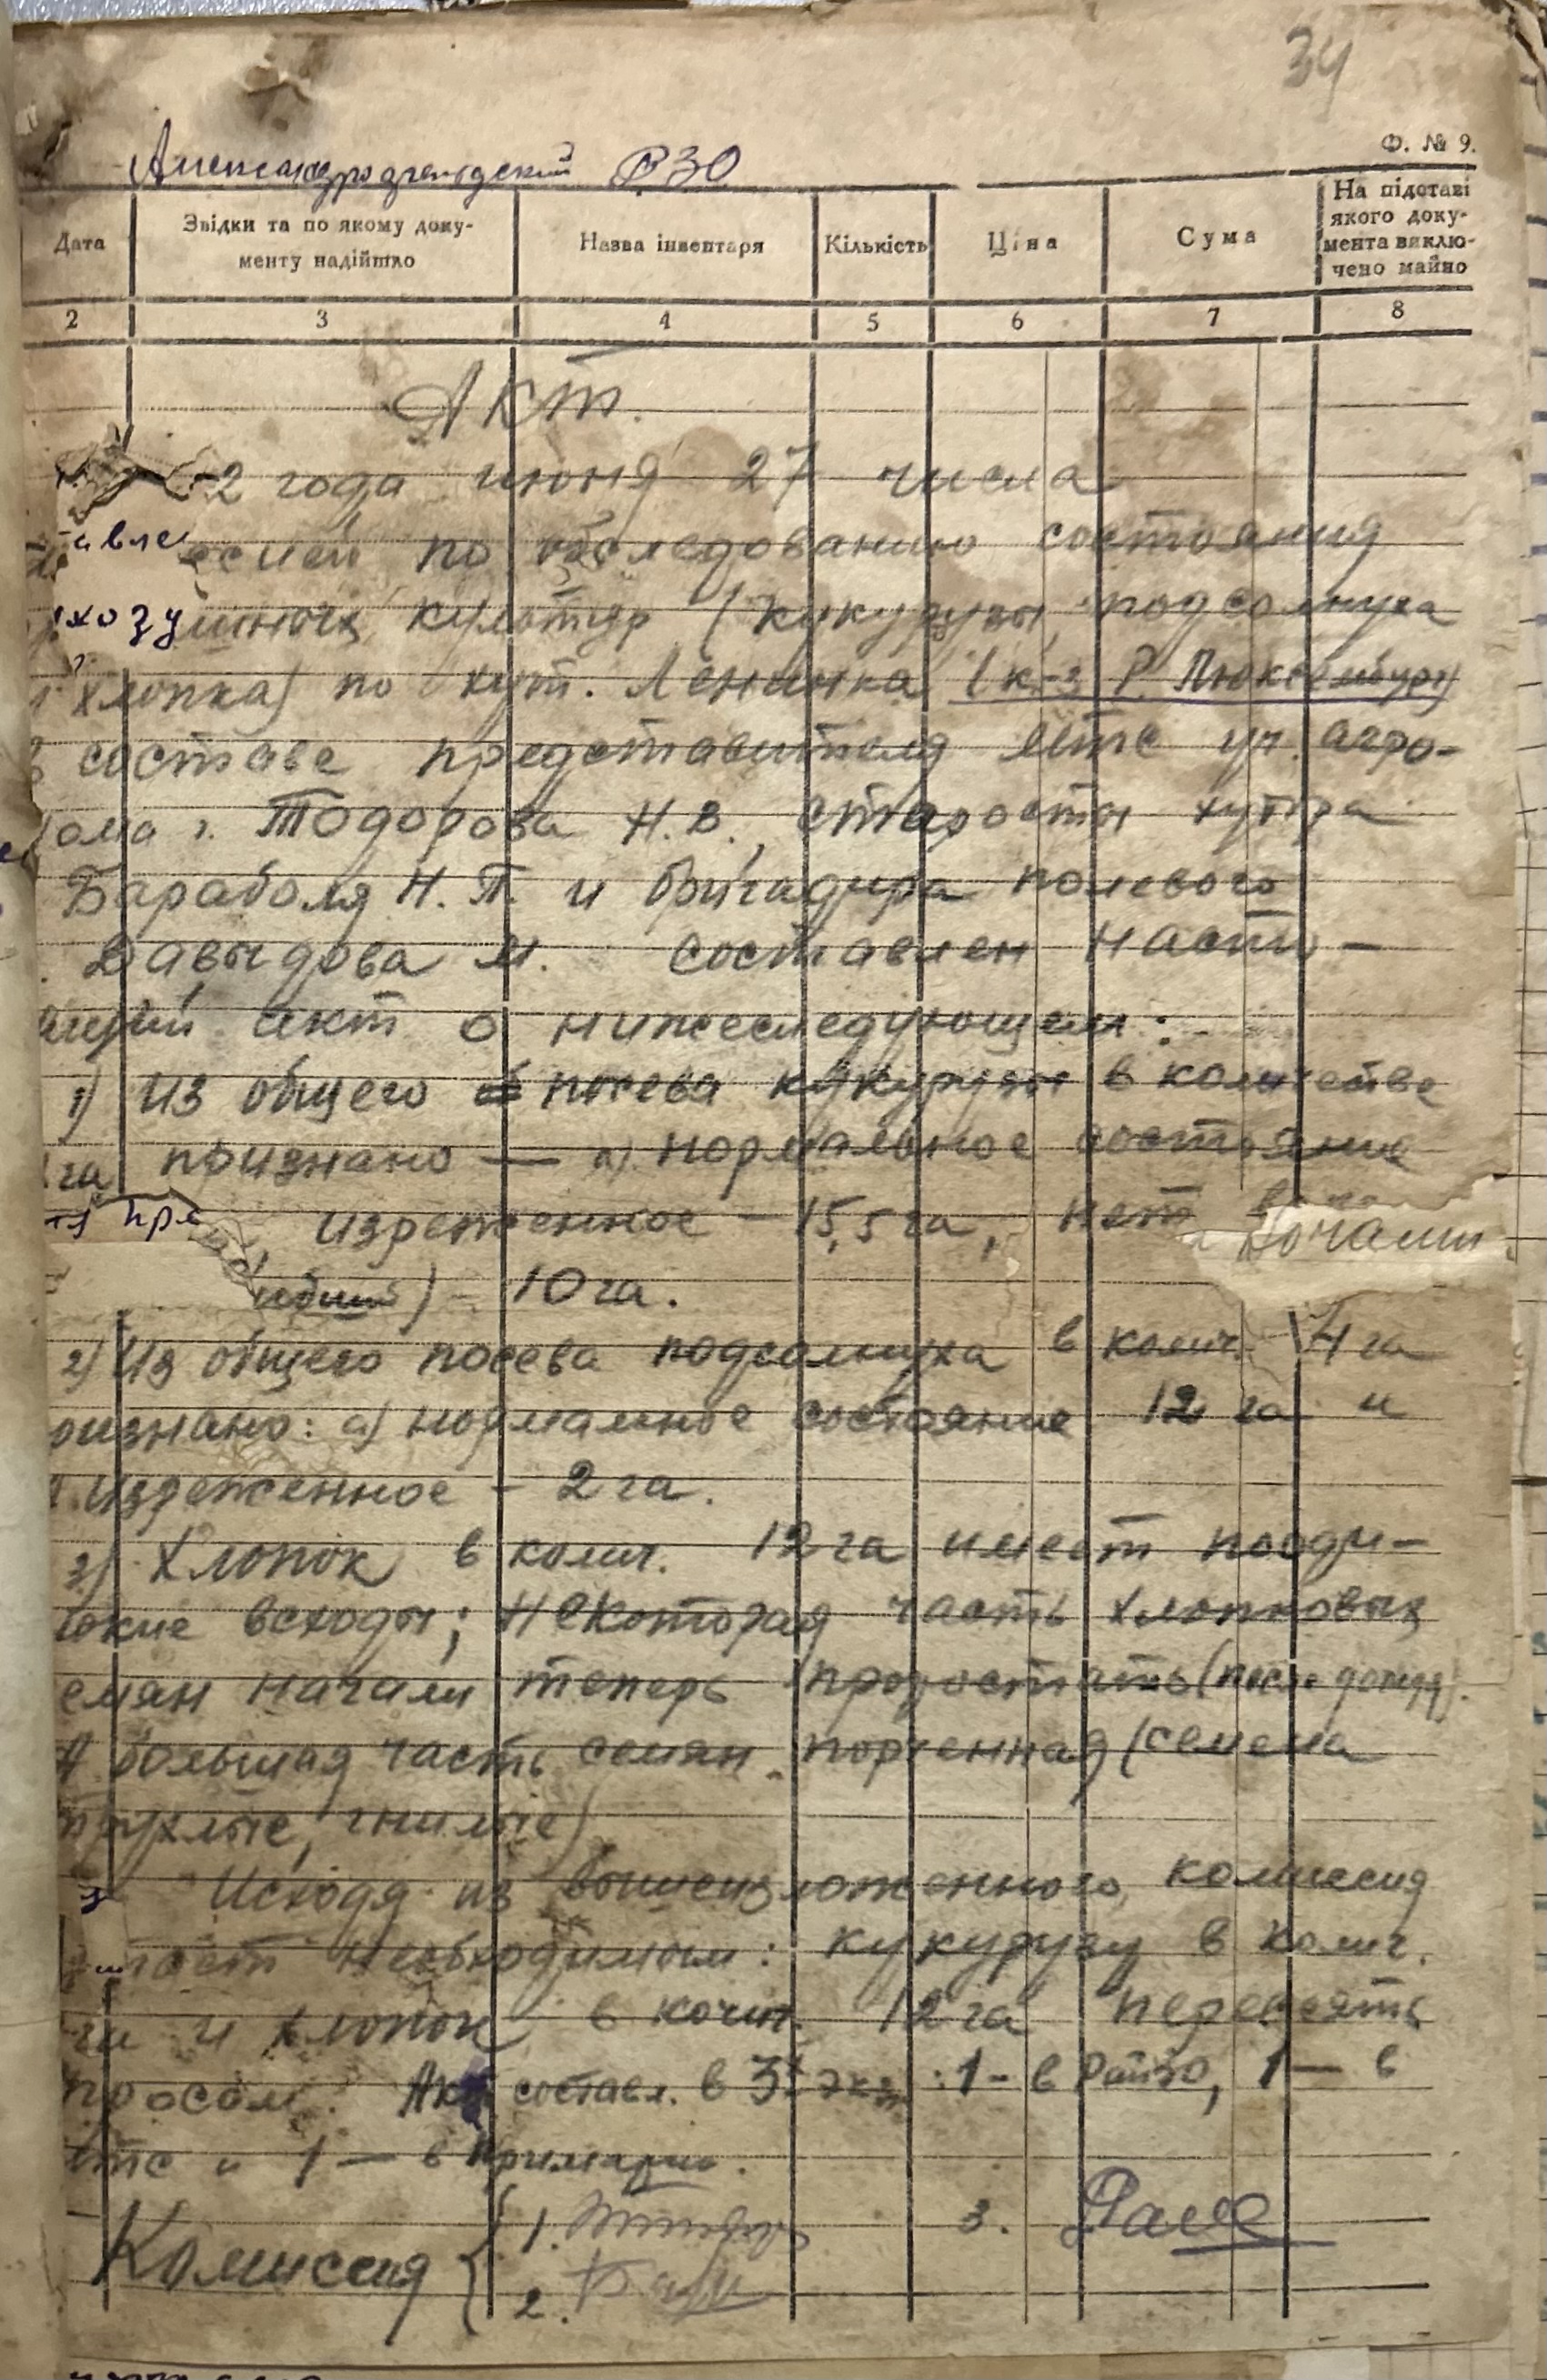 34
Ф. № 9.
Александрофельдский РЗО
Дата
Звідки та по якому доку-
менту надійшло
Назва інвентаря
Кількість
Ціна
Сума
На підставі
якого доку-
мента виклю-
чено майно
2 3 4 5 6 7 8
Акт.
2 года июня 27 числа
ссией по обследованию состояния
культур (кукурузы, подсолнуха
и хлопка) по хут. Ленинка (к-з Р. Люксембург)
в составе представителя МТС уч. агро-
нома г. Тодорова Н.В., старосты хутора
Бараболя Н.П. и бригадира полевого
Давыдова М. составлен насто-
ящий акт о нижеследующем:
1) Из общего посева кукурузы в количестве
га признано — а) нормальное состояние
изреженное — 15,5 га, нет
) — 10 га.
2) Из общего посева подсолнуха в колич. 14 га
ризнано: а) нормальное состояние 12 га и
изреженное — 2 га.
3) Хлопок в колич. 12 га имеет поэди-
нокие всходы; Некоторая часть хлопковых
семян начали теперь проростать (после дождя).
А большая часть семян порченная (семена
трухлые, гнилые)
Исходя из вышеизложенного, комиссия
необходимым: кукурузу в колич.
га и хлопок в колич. 12 га пересеять
просом. Акт составл. в 3х экз.: 1 - в РайЗО, 1 — в
МТС и 1 — в Примарию.
Комиссия
1.
2.
3.